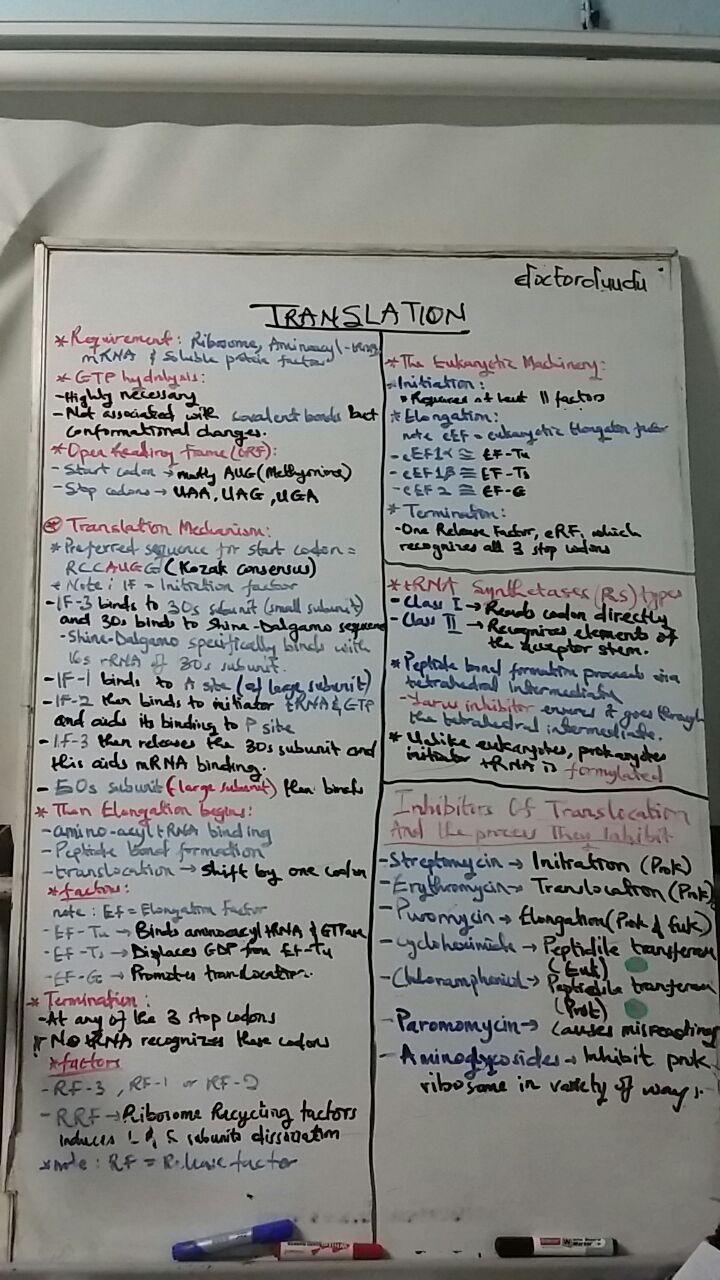 doctordyudu
TRANSLATION
* Requirement: Ribosome, Aminoacyl-tRNA,
mRNA & Soluble protein factors
* GTP hydrolysis:
- Highly necessary
- Not associated with covalent bonds but
conformational changes.
* Open Reading Frame (ORF):
- Start codon → mostly AUG (Methyonine)
- Stop codons → UAA, UAG, UGA
* Translation Mechanism:
* Preferred sequence for start codon =
RCCAUGG (Kozak consensus)
* Note: IF = Initiation factor
- IF-3 binds to 30s subunit (small subunit)
and 30s binds to Shine-Dalgarno sequence
- Shine-Dalgarno specifically binds with
16s rRNA of 30s subunit.
- IF-1 binds to A site (of large subunit)
- IF-2 then binds to initiator tRNA & GTP
and aids its binding to P site
- IF-3 then releases the 30s subunit and
this aids mRNA binding.
- 50s subunit (large subunit) then binds
* Then Elongation begins:
- amino-acyl tRNA binding
- Peptide bond formation
- translocation → shift by one codon
* factors:
note: EF = Elongation Factor
- EF-Tu → Binds aminoacyl tRNA & GTPase
- EF-Ts → Displaces GDP from EF-Tu
- EF-G → Promotes translocation.
* Termination:
- At any of the 3 stop codons
- No tRNA recognizes these codons
* factors
- RF-3, RF-1 or RF-2
- RRF → Ribosome Recycling factors
induces L & S subunits dissociation
* note: RF = Release factor
* The Eukaryotic Machinery:
* Initiation:
* Requires at least 11 factors
* Elongation:
note eEF = eukaryotic Elongation factor
- eEF1α ≅ EF-Tu
- eEF1β ≅ EF-Ts
- eEF2 ≅ EF-G
* Termination:
- One Release Factor, eRF, which
recognizes all 3 stop codons
* tRNA Synthetases (RS) types
- Class I → Reads codon directly
- Class II → Recognizes elements of
the acceptor stem.
* Peptide bond formation proceeds via
tetrahedral intermediate
- inhibitor ensures it goes through
the tetrahedral intermediate.
* Unlike eukaryotes, prokaryotes
initiator tRNA is formylated
Inhibitors Of Translocation
And the process They Inhibit
- Streptomycin → Initiation (Prok)
- Erythromycin → Translocation (Prok)
- Puromycin → Elongation (Prok & Euk)
- Cycloheximide → Peptidile transferase
(Euk)
- Chloramphenicol → Peptidile transferase
(Prok)
- Paromomycin → causes misreading
- Aminoglycosides → Inhibit prok.
ribosome in variety of ways.